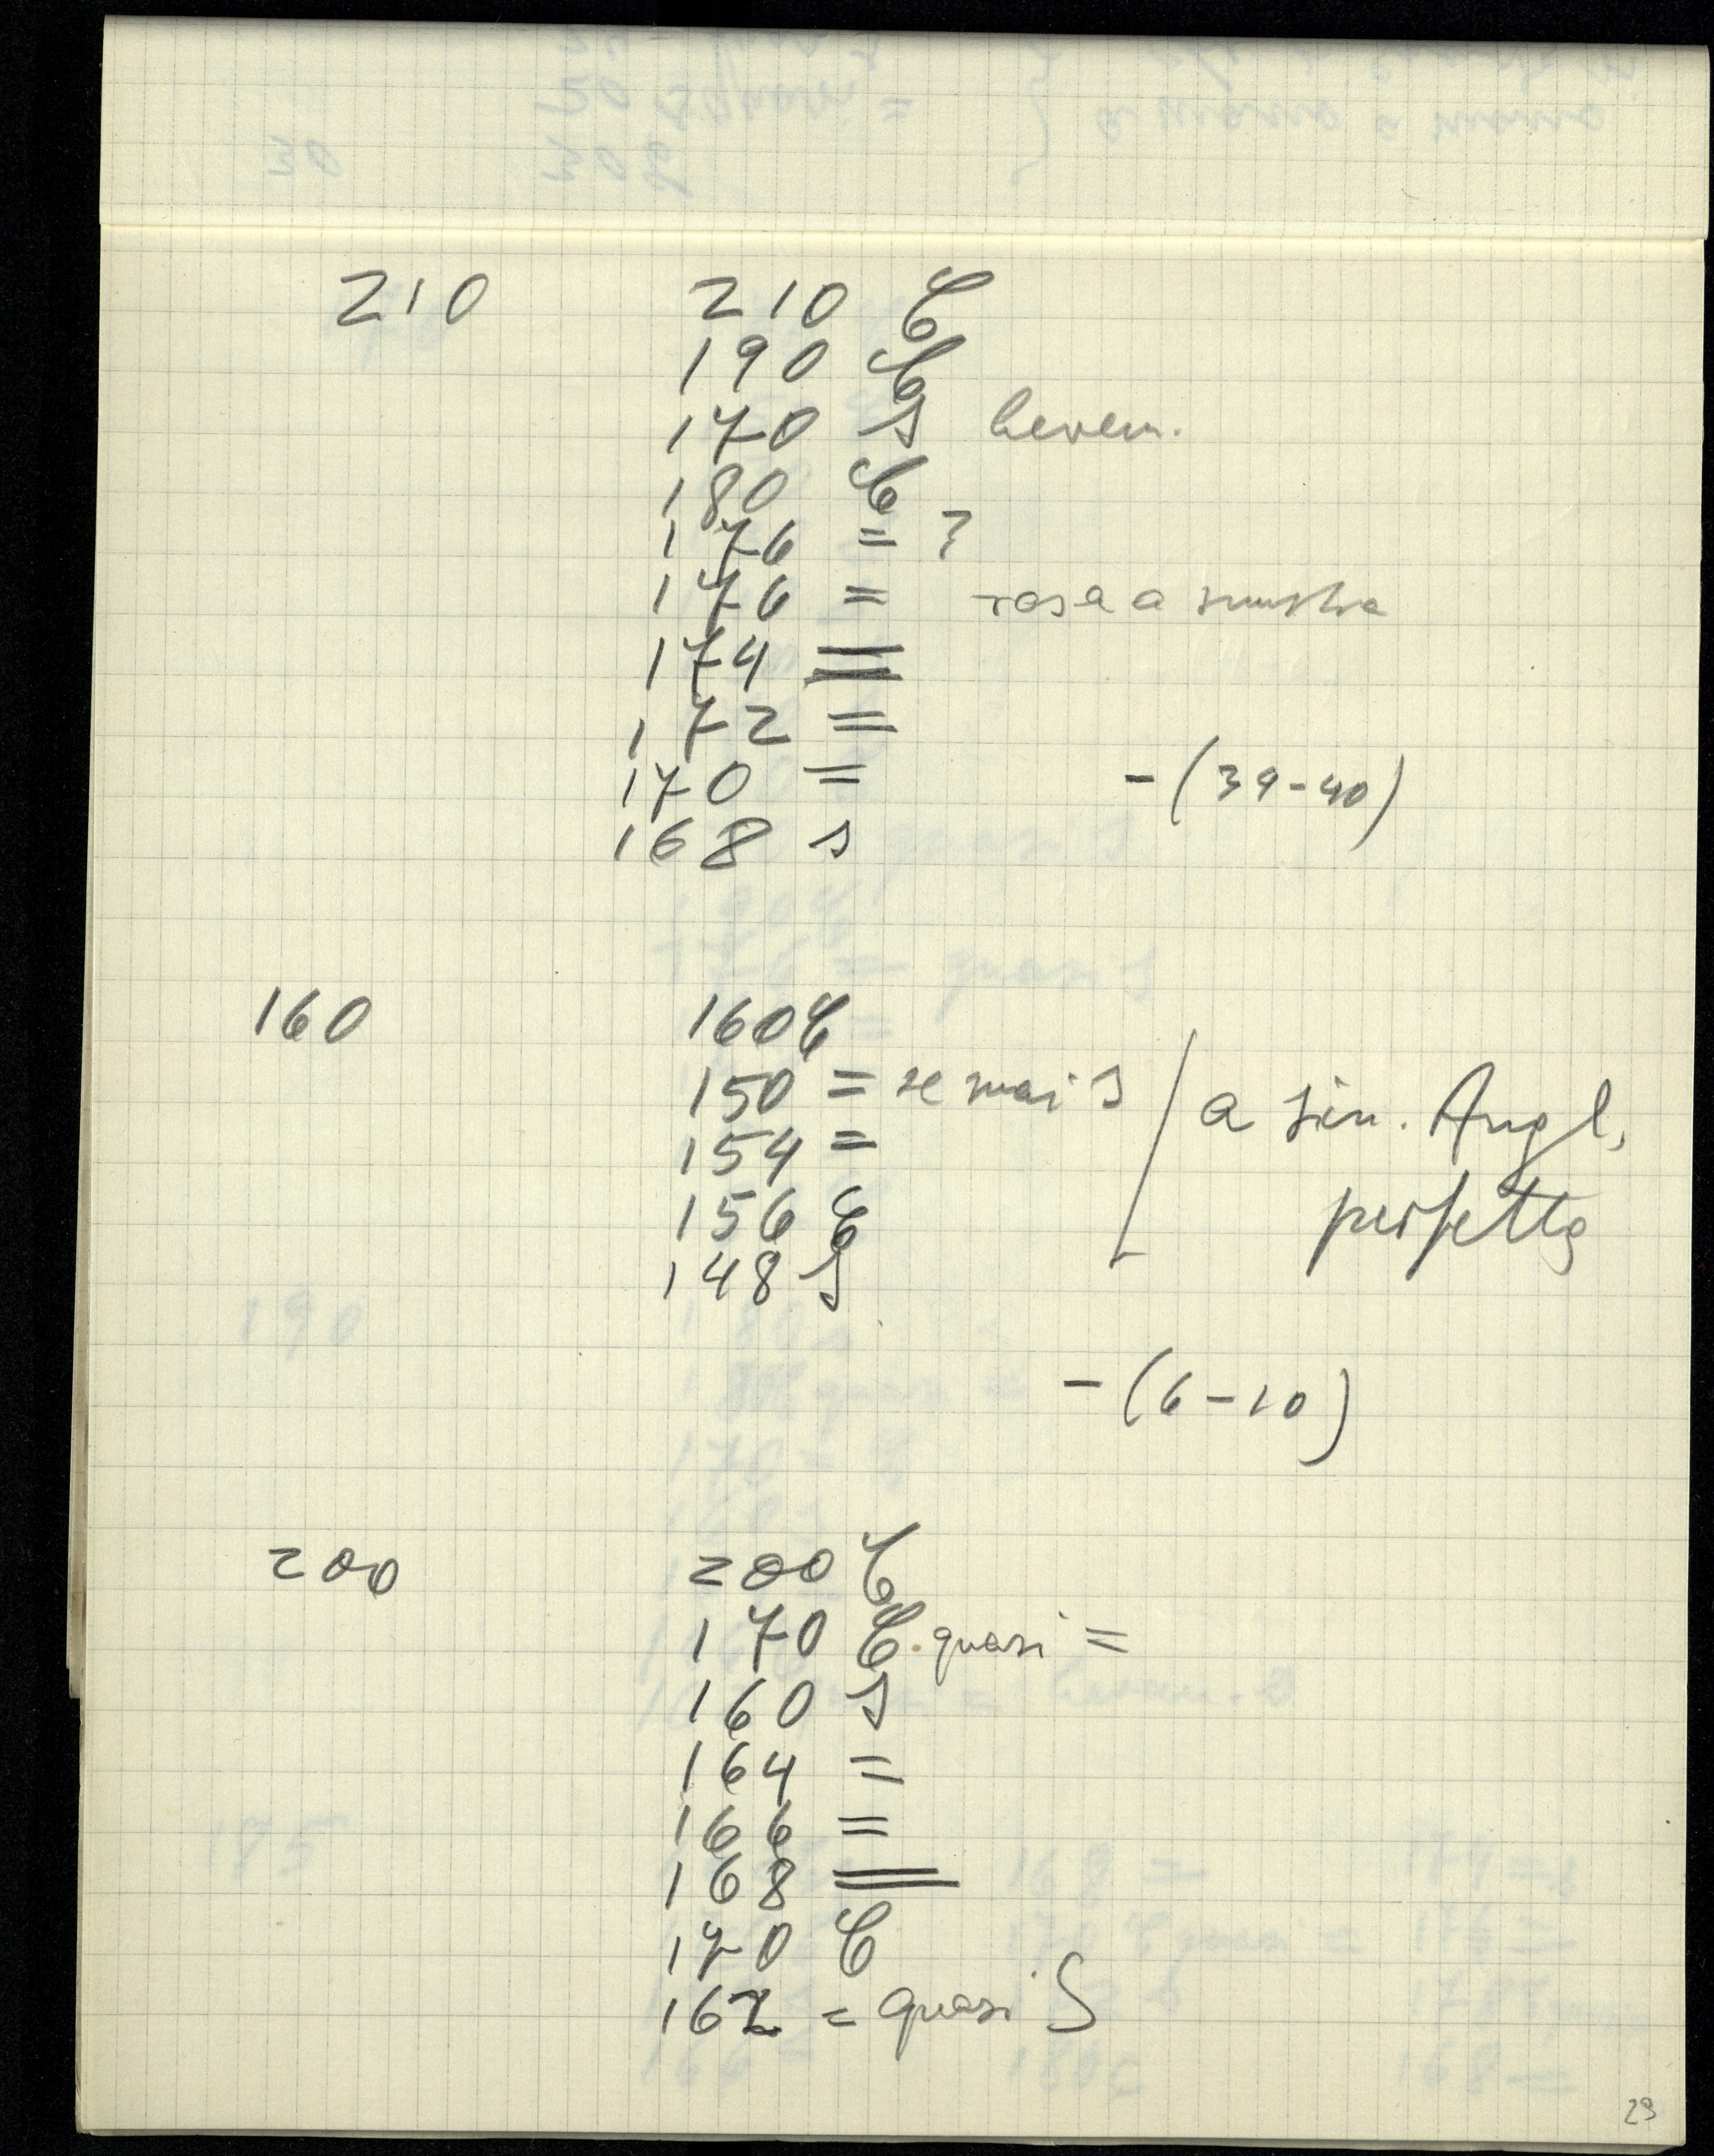 210 210 C
190 C
170 S lievem.
180 C
176 = ?
176 = rosa a sinistra
174 =
172 =
170 = -(39-40)
168 s
160 160 C
150 = se mai S / a sin. Angl.
154 = perfetto
156 C
148 S
-(6-10)
200 200 C
170 C. quasi =
160 S
164 =
166 =
168 =
170 C
162 = quasi S
29